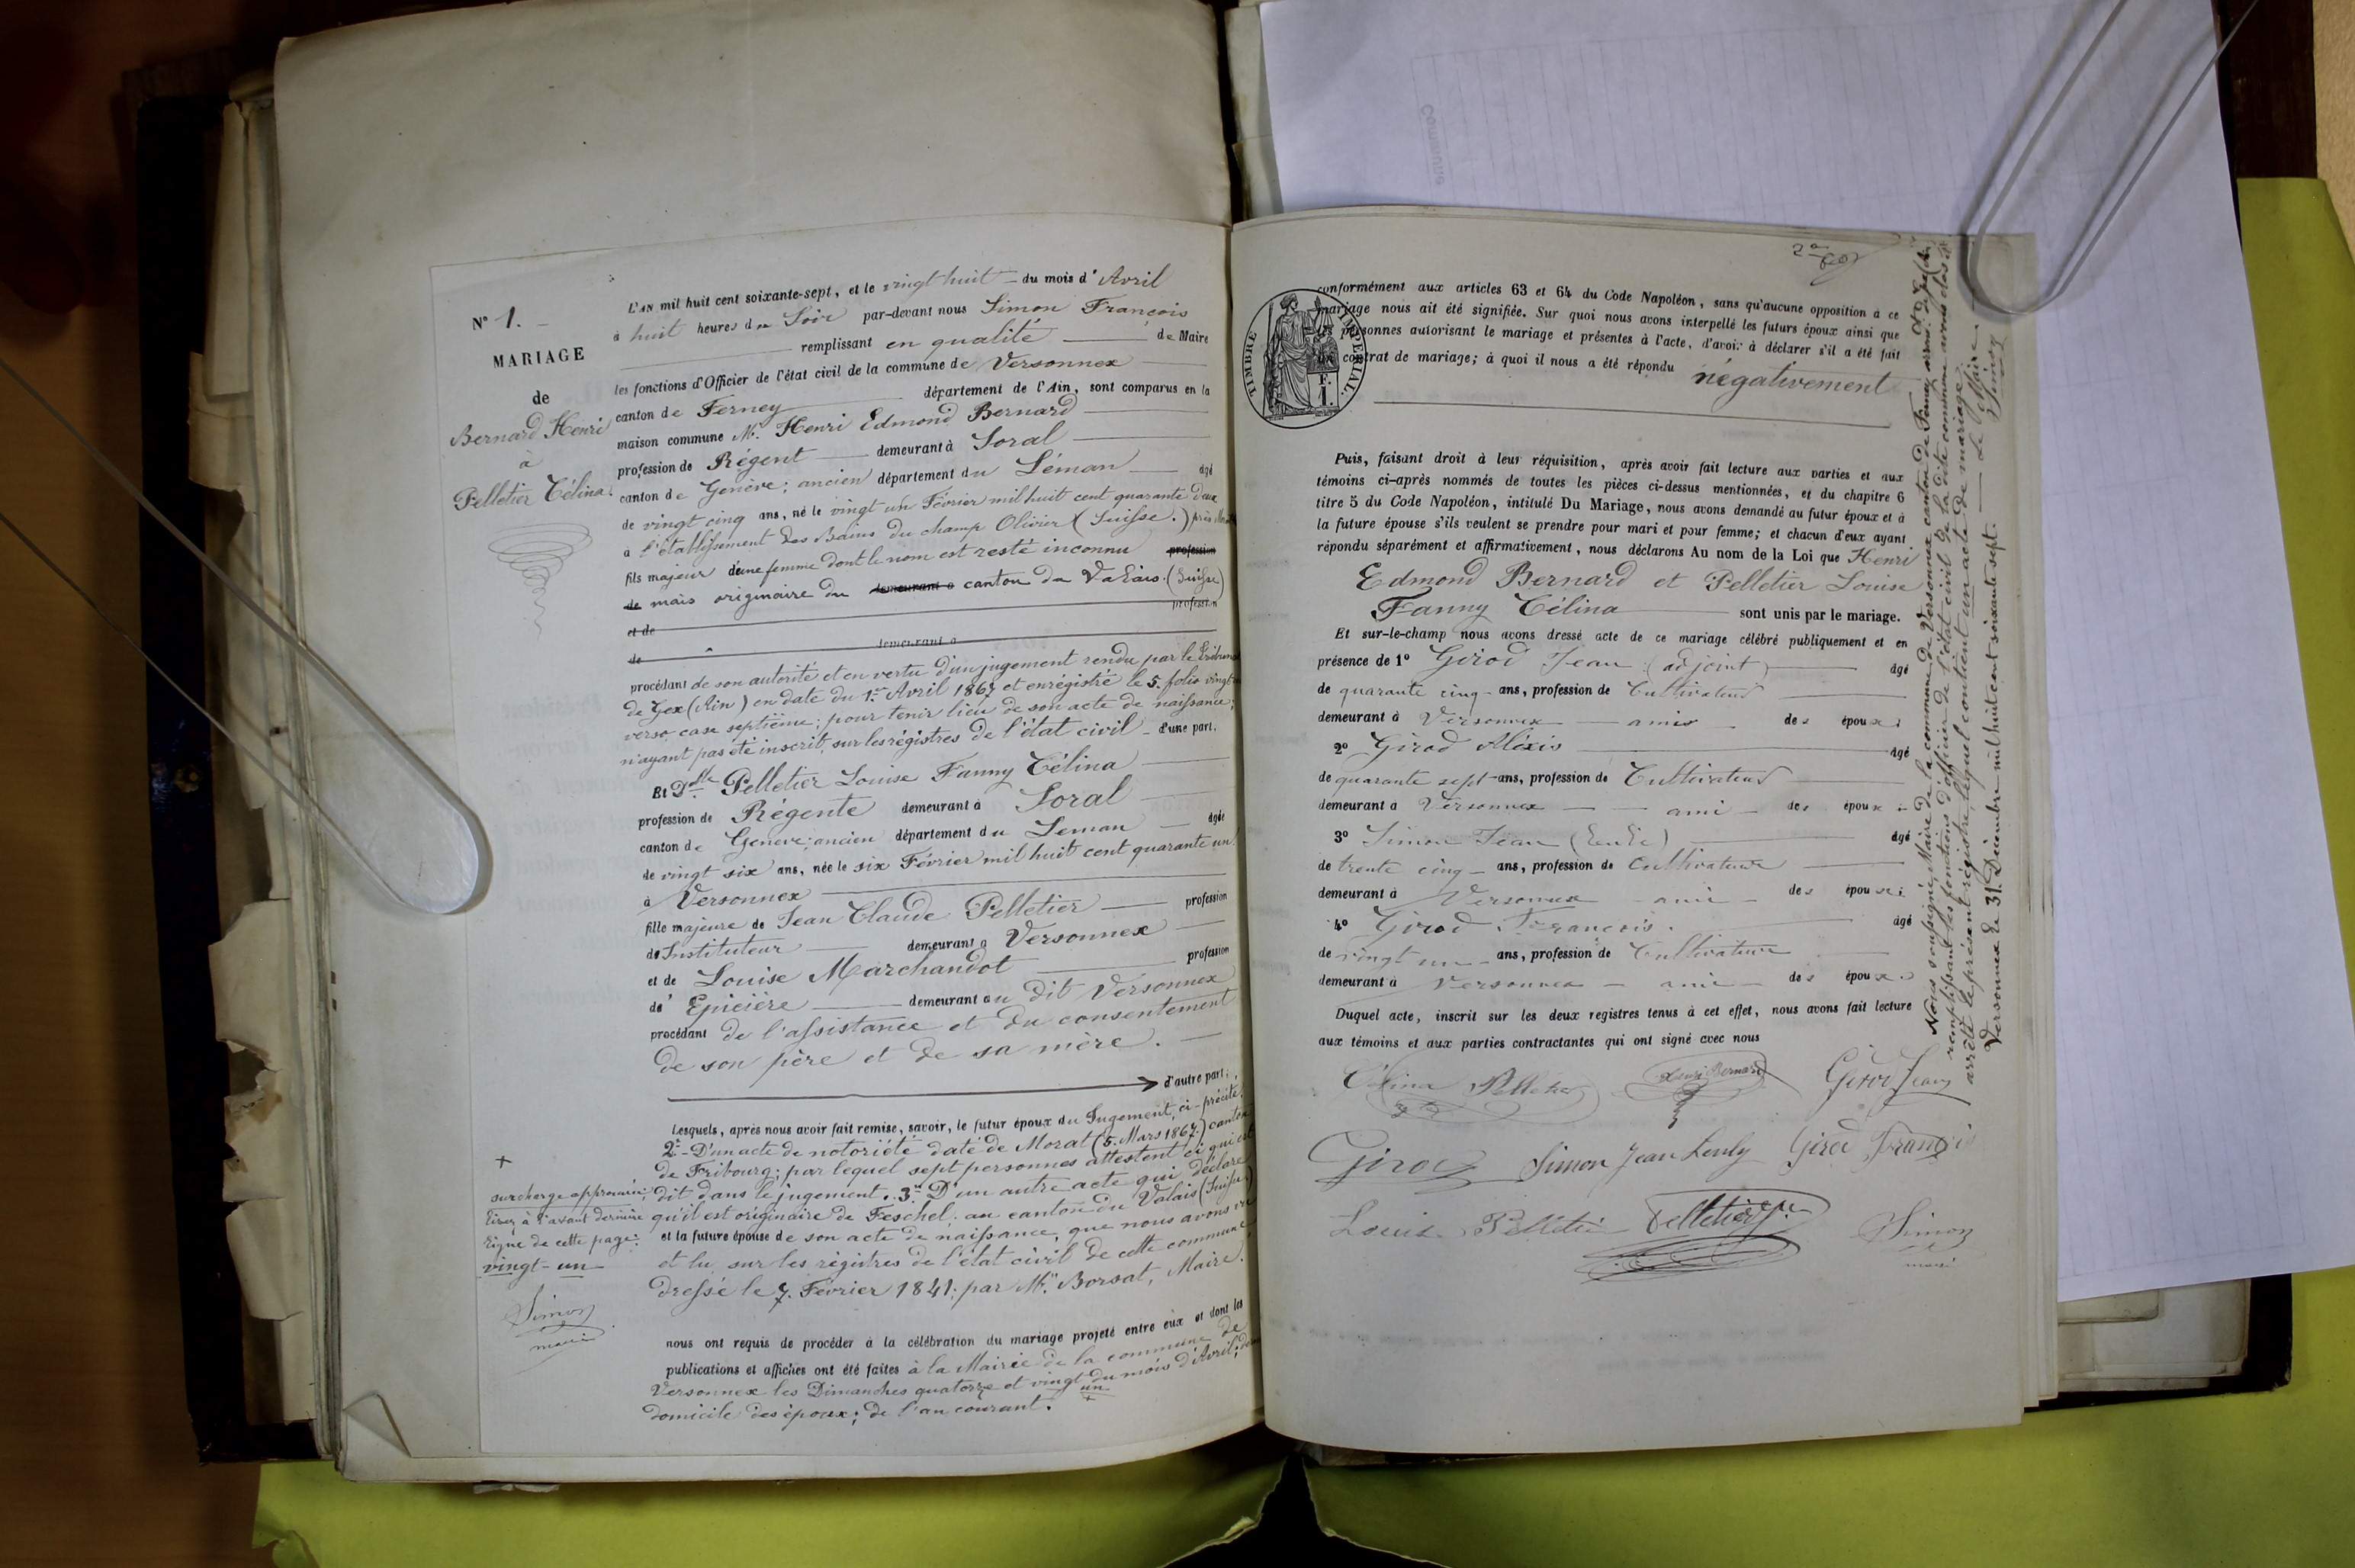 N° 1.
MARIAGE
de
Bernard Henri
à
Pelletier Célina.
L'AN mil huit cent soixante-sept, et le vingt huit du mois d' Avril
à huit heures du Soir par-devant nous Simon François
remplissant en qualité de Maire
les fonctions d'Officier de l'état civil de la commune de Versonnex
canton de Ferney département de l'Ain, sont comparus en la
maison commune Mr. Henri Edmond Bernard
profession de Régent demeurant à Soral
canton de Genève; ancien département du Léman âgé
de vingt cinq ans, né le vingt un Février mil huit cent quarante deux
à l'établissement des Bains du champ Olivier (Suisse.) près
fils majeur d'une femme dont le nom est resté inconnu profession
de mais originaire du demeurant à canton du Valais. (Suisse)
et de profession
de demeurant à
procédant de son autorité et en vertu d'un jugement rendu par le Tribunal
de Gex (Ain) en date du 1er Avril 1867 et enrégistré le 5. folio vingt
verso case septième; pour tenir lieu de son acte de naissance;
n'ayant pas été inscrit, sur les régistres de l'état civil d'une part,
Et Dlle Pelletier Louise Fanny Célina
profession de Régente demeurant à Soral
canton de Genève; ancien département du Léman âgée
de vingt six ans, née le six Février mil huit cent quarante un
à Versonnex
fille majeure de Jean Claude Pelletier profession
de Instituteur demeurant à Versonnex
et de Louise Marchandot profession
de Epicière demeurant au dit Versonnex
procédant de l'assistance et du consentement
de son père et de sa mère.
d'autre part;
Lesquels, après nous avoir fait remise, savoir, le futur époux du Jugement, ci-précité.
2° D'un acte de notoriété daté de Morat (5. Mars 1867.) canton
de Fribourg; par lequel sept personnes attestent ce qui est
dit dans le jugement. 3° D'un autre acte qui déclare
qu'il est originaire de Feschel, au canton du Valais (Suisse.)
et la future épouse de son acte de naissance, que nous avons vu
et lu, sur les régistres de l'état civil de cette commune
dressé le 7. Février 1841. par Mr. Borsat, Maire.
nous ont requis de procéder à la célébration du mariage projeté entre eux et dont les
publications et affiches ont été faites à la Mairie de la commune de
Versonnex les Dimanches quatorze et vingt un du mois d'Avril;
+
domicile des époux; de l'an courant.
+
surcharge approuvée
lisez à l'avant dernière
ligne de cette page:
vingt-un
Simon
maire
TIMBRE IMPERIAL.
F.
1.
conformément aux articles 63 et 64 du Code Napoléon, sans qu'aucune opposition à ce
mariage nous ait été signifiée. Sur quoi nous avons interpellé les futurs époux ainsi que
les personnes autorisant le mariage et présentes à l'acte, d'avoir à déclarer s'il a été fait
un contrat de mariage; à quoi il nous a été répondu négativement
Puis, faisant droit à leur réquisition, après avoir fait lecture aux parties et aux
témoins ci-après nommés de toutes les pièces ci-dessus mentionnées, et du chapitre 6
titre 5 du Code Napoléon, intitulé Du Mariage, nous avons demandé au futur époux et à
la future épouse s'ils veulent se prendre pour mari et pour femme; et chacun d'eux ayant
répondu séparément et affirmativement, nous déclarons Au nom de la Loi que Henri
Edmond Bernard et Pelletier Louise
Fanny Célina sont unis par le mariage.
Et sur-le-champ nous avons dressé acte de ce mariage célébré publiquement et en
présence de 1° Girod Jean (adjoint) âgé
de quarante cinq ans, profession de Cultivateur
demeurant à Versonnex amis des époux;
2° Girod Aléxis âgé
de quarante sept ans, profession de Cultivateur
demeurant à Versonnex ami des époux;
3° Simon Jean âgé
de trente cinq ans, profession de Cultivateur
demeurant à Versonnex ami des époux;
4° Girod François. âgé
de vingt un ans, profession de Cultivateur
demeurant à Versonnex ami des époux
Duquel acte, inscrit sur les deux registres tenus à cet effet, nous avons fait lecture
aux témoins et aux parties contractantes qui ont signé avec nous
Célina Pelletier Henri Bernard Girod Jean
Girod Simon Jean Girod François
Louise Pelletier Pelletier Simon
maire
Nous soussigné, Maire de la commune de Versonnex canton de Ferney
remplissant les fonctions d'officier de l'état civil de la dite commune avons clos &
arrêté le présent régistre, lequel contient un acte de mariage.
Versonnex le 31. Décembre mil huit cent soixante sept. Le Maire
Simon
Commune